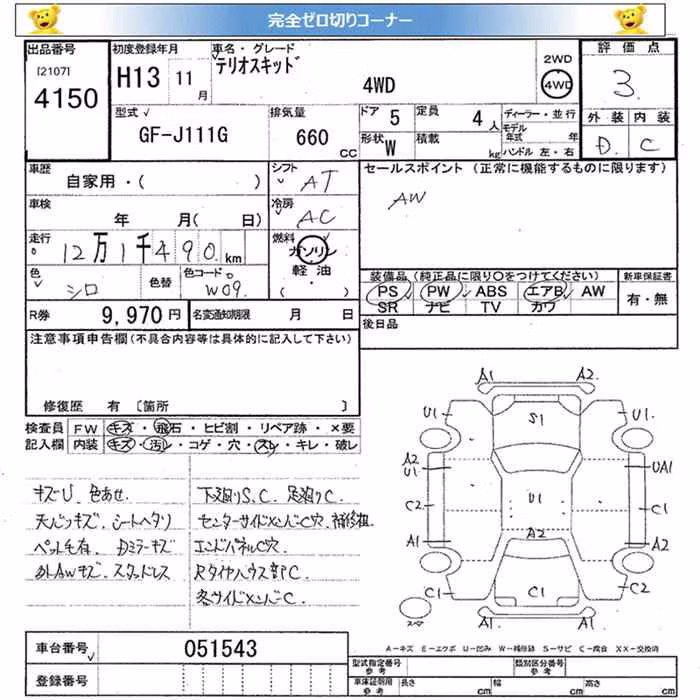 完全ゼロ切りコーナー
出品番号
[2107]
4150
初度登録年月
H13 11月
車名・グレード
テリオスキッド
4WD
2WD
4WD
評価点
3.
外装 内装
D. C
型式
GF-J111G
排気量
660 CC
ドア 5
定員 4人
形状 W
積載 kg
ディーラー・並行
モデル年式 年
ハンドル 左・右
車歴
自家用・( )
シフト AT
車検
年 月( 日)
冷房 AC
走行
12万1千490km
燃料
ガソリン
軽油
( ・ )
色 シロ
色替
色コード W09
R券 9,970円
名変通知期限 月 日
セールスポイント (正常に機能するものに限ります)
AW
装備品(純正品に限り○をつけてください)
PS PW ABS エアB AW
SR ナビ TV カワ
新車保証書
有・無
後日品
注意事項申告欄(不具合内容等は具体的に記入して下さい)
修復歴 有 〔箇所 〕
検査員記入欄
FW キズ・飛石・ヒビ割・リペア跡・×要
内装 キズ・汚レ・コゲ・穴・スレ・キレ・破レ
キズU 色あせ
天バリキズ、シートヘタリ
ペット毛有、Dミラーキズ
外AWキズ、スタッドレス
下廻りS、C 足廻りC
センターサイドメンバーC穴、補修粗
エンドパネルC穴
RタイヤハウスC
各サイドメンバC.
A1 A2
U1 S1 U1.
A2
U1
UA1
C2 U1 C1
A1 A2 A2
C1 C1 C2
A1 A1
スペア
A-キズ E-エクボ U-凹み W-補修跡 S-サビ C-腐食 XX-交換済
車台番号 051543
登録番号
型式指定番号 参考
類別区分番号 参考
車体証明用 参考
長さ cm 幅 cm 高さ cm